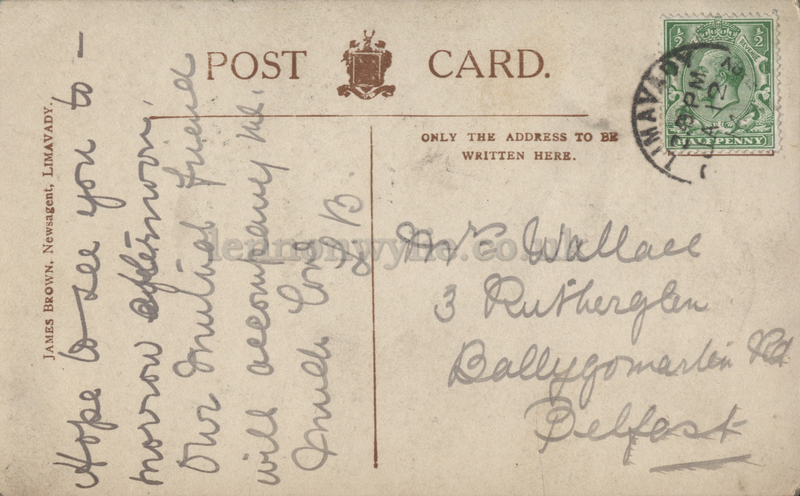 POST CARD.
JAMES BROWN, Newsagent, LIMAVADY.
ONLY THE ADDRESS TO BE
WRITTEN HERE.
Hope to see you to -
morrow afternoon.
Our mutual friend
will accompany me.
Much love
B.
Mrs Wallace
3 Rutherglen
Ballygomartin Rd
Belfast
LIMAVADY
8 PM
12
½ ½
HALFPENNY
lennonwylie.co.uk